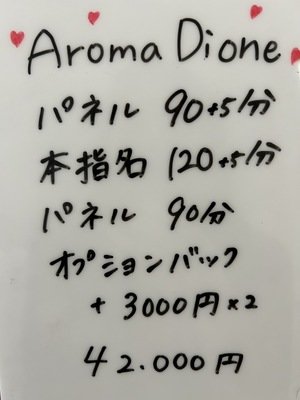 Aroma Dione
パネル 90+5分
本指名 120+5分
パネル 90分
オプションバック
+ 3000円×2
42.000円